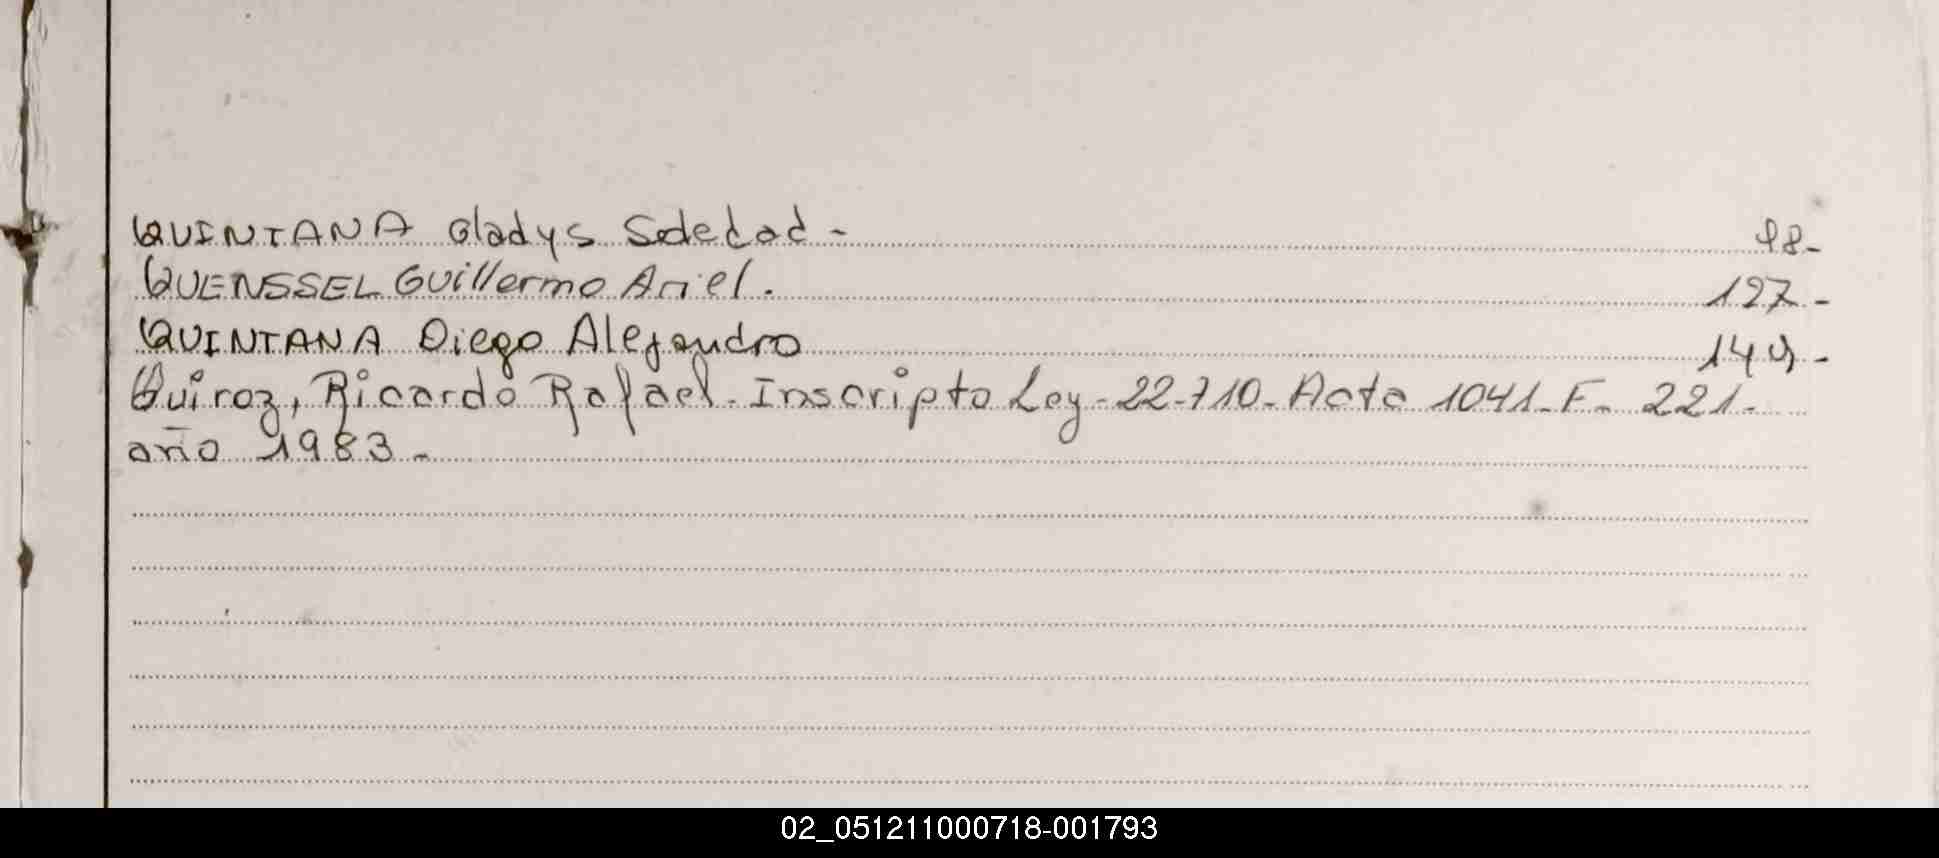 QUINTANA Gladys Soledad - 98-
QUENSSEL Guillermo Ariel. 127-
QUINTANA Diego Alejandro 149-
Quiroz, Ricardo Rafael. Inscripto Ley-22-710-Acta 1041-F- 221-
año 1983-
02_051211000718-001793